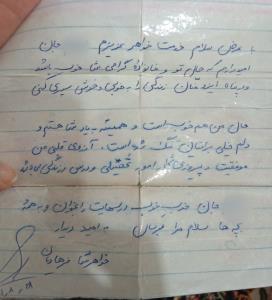 با عرض سلام خدمت خواهر عزیزم جان
امیدوارم که حال تو و خانواده گرامی شما خوب باشد
و در پناه ایزد منان زندگی را به خوبی و خوشی سپری کنی
حال من هم خوب است و همیشه به یاد شما هستم و
دلم خیلی برایتان تنگ شده است. آرزوی قلبی من
موفقیت و پیروزی شما در امور تحصیلی و درس و زندگی می باشد
جان خوب خوب درسهایت را بخوان و به همه
بچه ها سلام مرا برسان به امید دیدار
خواهر شما